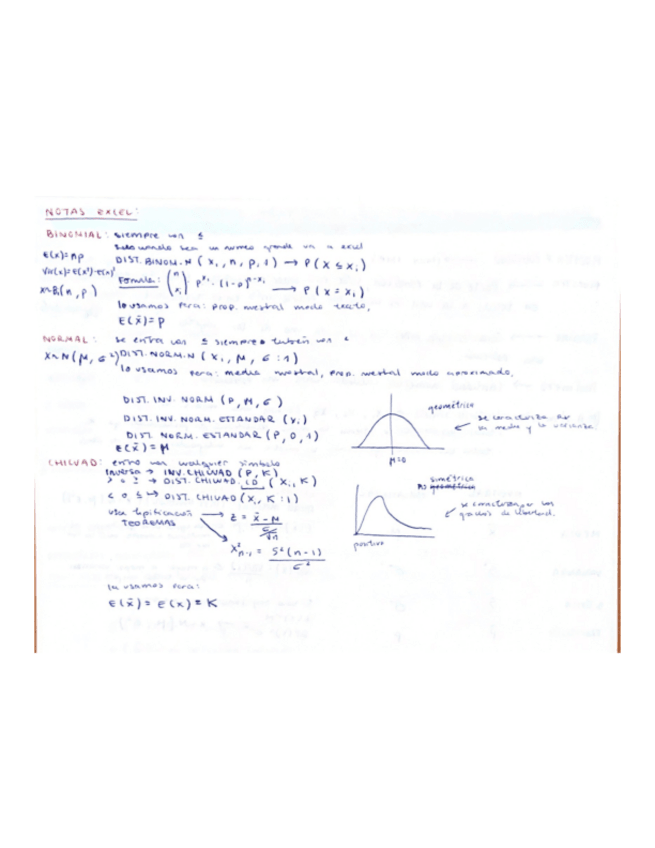 NOTAS EXCEL:
BINOMIAL: siempre con ≤
solo cuando sea un número grande en a excel
E(x)=np
DIST.BINOM.N (xi, n, p, 1) → P(X ≤ xi)
Var(x)=E(x²)-E(x)²
Fórmula: (n xi) · p^xi · (1-p)^n-xi → P(X = xi)
X~Bi(n,p)
lo usamos para: prop. mestral modo exacto,
E(x̄)=p
NORMAL: se entra con ≤ siempre también con <
X~N(M, σ²) DIST.NORM.N (xi, M, σ:1)
lo usamos para: media mestral, prop. mestral modo aproximado,
DIST. INV. NORM (P, M, σ)
DIST. INV. NORM. ESTANDAR (xi)
DIST. NORM. ESTANDAR (P, 0, 1)
E(x̄)=M
geométrica
se caracteriza por
su media y la varianza
M=0
CHICUAD: entro con cualquier símbolo
Inversa → INV.CHICUAD (P, K)
> o ≥ → DIST.CHICUAD.CD (xi, K)
< o ≤ → DIST.CHICUAD (xi, K:1)
usa tipificación → z = x̄ - M / σ/√n
TEOREMAS
X²n-1 = S²(n-1) / σ²
simétrica
no geométrica
se caracteriza por los
grados de libertad.
positivo
la usamos para:
E(x̄) = E(x) = K